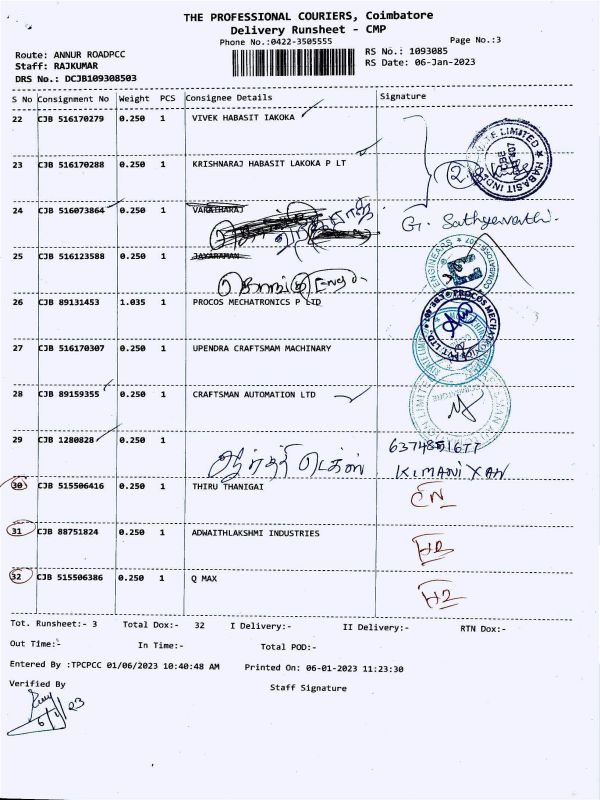 THE PROFESSIONAL COURIERS, Coimbatore
Delivery Runsheet - CMP
Phone No.:0422-3505555
Page No.:3
Route: ANNUR ROADPCC
RS No.: 1093085
Staff: RAJKUMAR
RS Date: 06-Jan-2023
DRS No.: DCJB109308503
S No Consignment No Weight PCS Consignee Details Signature
22 CJB 516170279 0.250 1 VIVEK HABASIT IAKOKA
23 CJB 516170288 0.250 1 KRISHNARAJ HABASIT LAKOKA P LT
2
24 CJB 516073864 0.250 1 VARATHARAJ
G. Sathyavathi.
25 CJB 516123588 0.250 1 JAYARAMAN
26 CJB 89131453 1.035 1 PROCOS MECHATRONICS P LTD
27 CJB 516170307 0.250 1 UPENDRA CRAFTSMAM MACHINARY
28 CJB 89159355 0.250 1 CRAFTSMAN AUTOMATION LTD
29 CJB 1280828 0.250 1
K.MANI
30 CJB 515506416 0.250 1 THIRU THANIGAI
31 CJB 88751824 0.250 1 ADWAITHLAKSHMI INDUSTRIES
32 CJB 515506386 0.250 1 Q MAX
Tot. Runsheet:- 3 Total Dox:- 32 I Delivery:- II Delivery:- RTN Dox:-
Out Time:- In Time:- Total POD:-
Entered By :TPCPCC 01/06/2023 10:40:48 AM Printed On: 06-01-2023 11:23:30
Verified By
Staff Signature
6/1/23